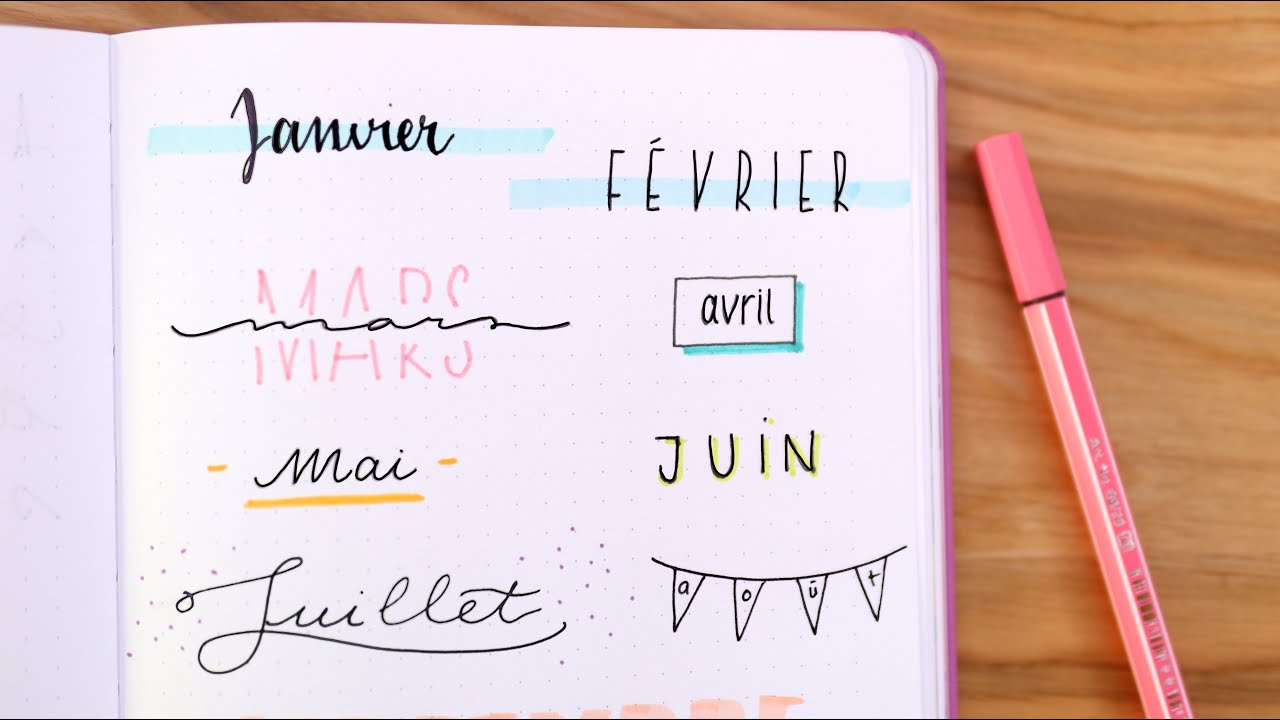 Janvier
FÉVRIER
MARS
mars
avril
Mai
JUiN
Juillet
août